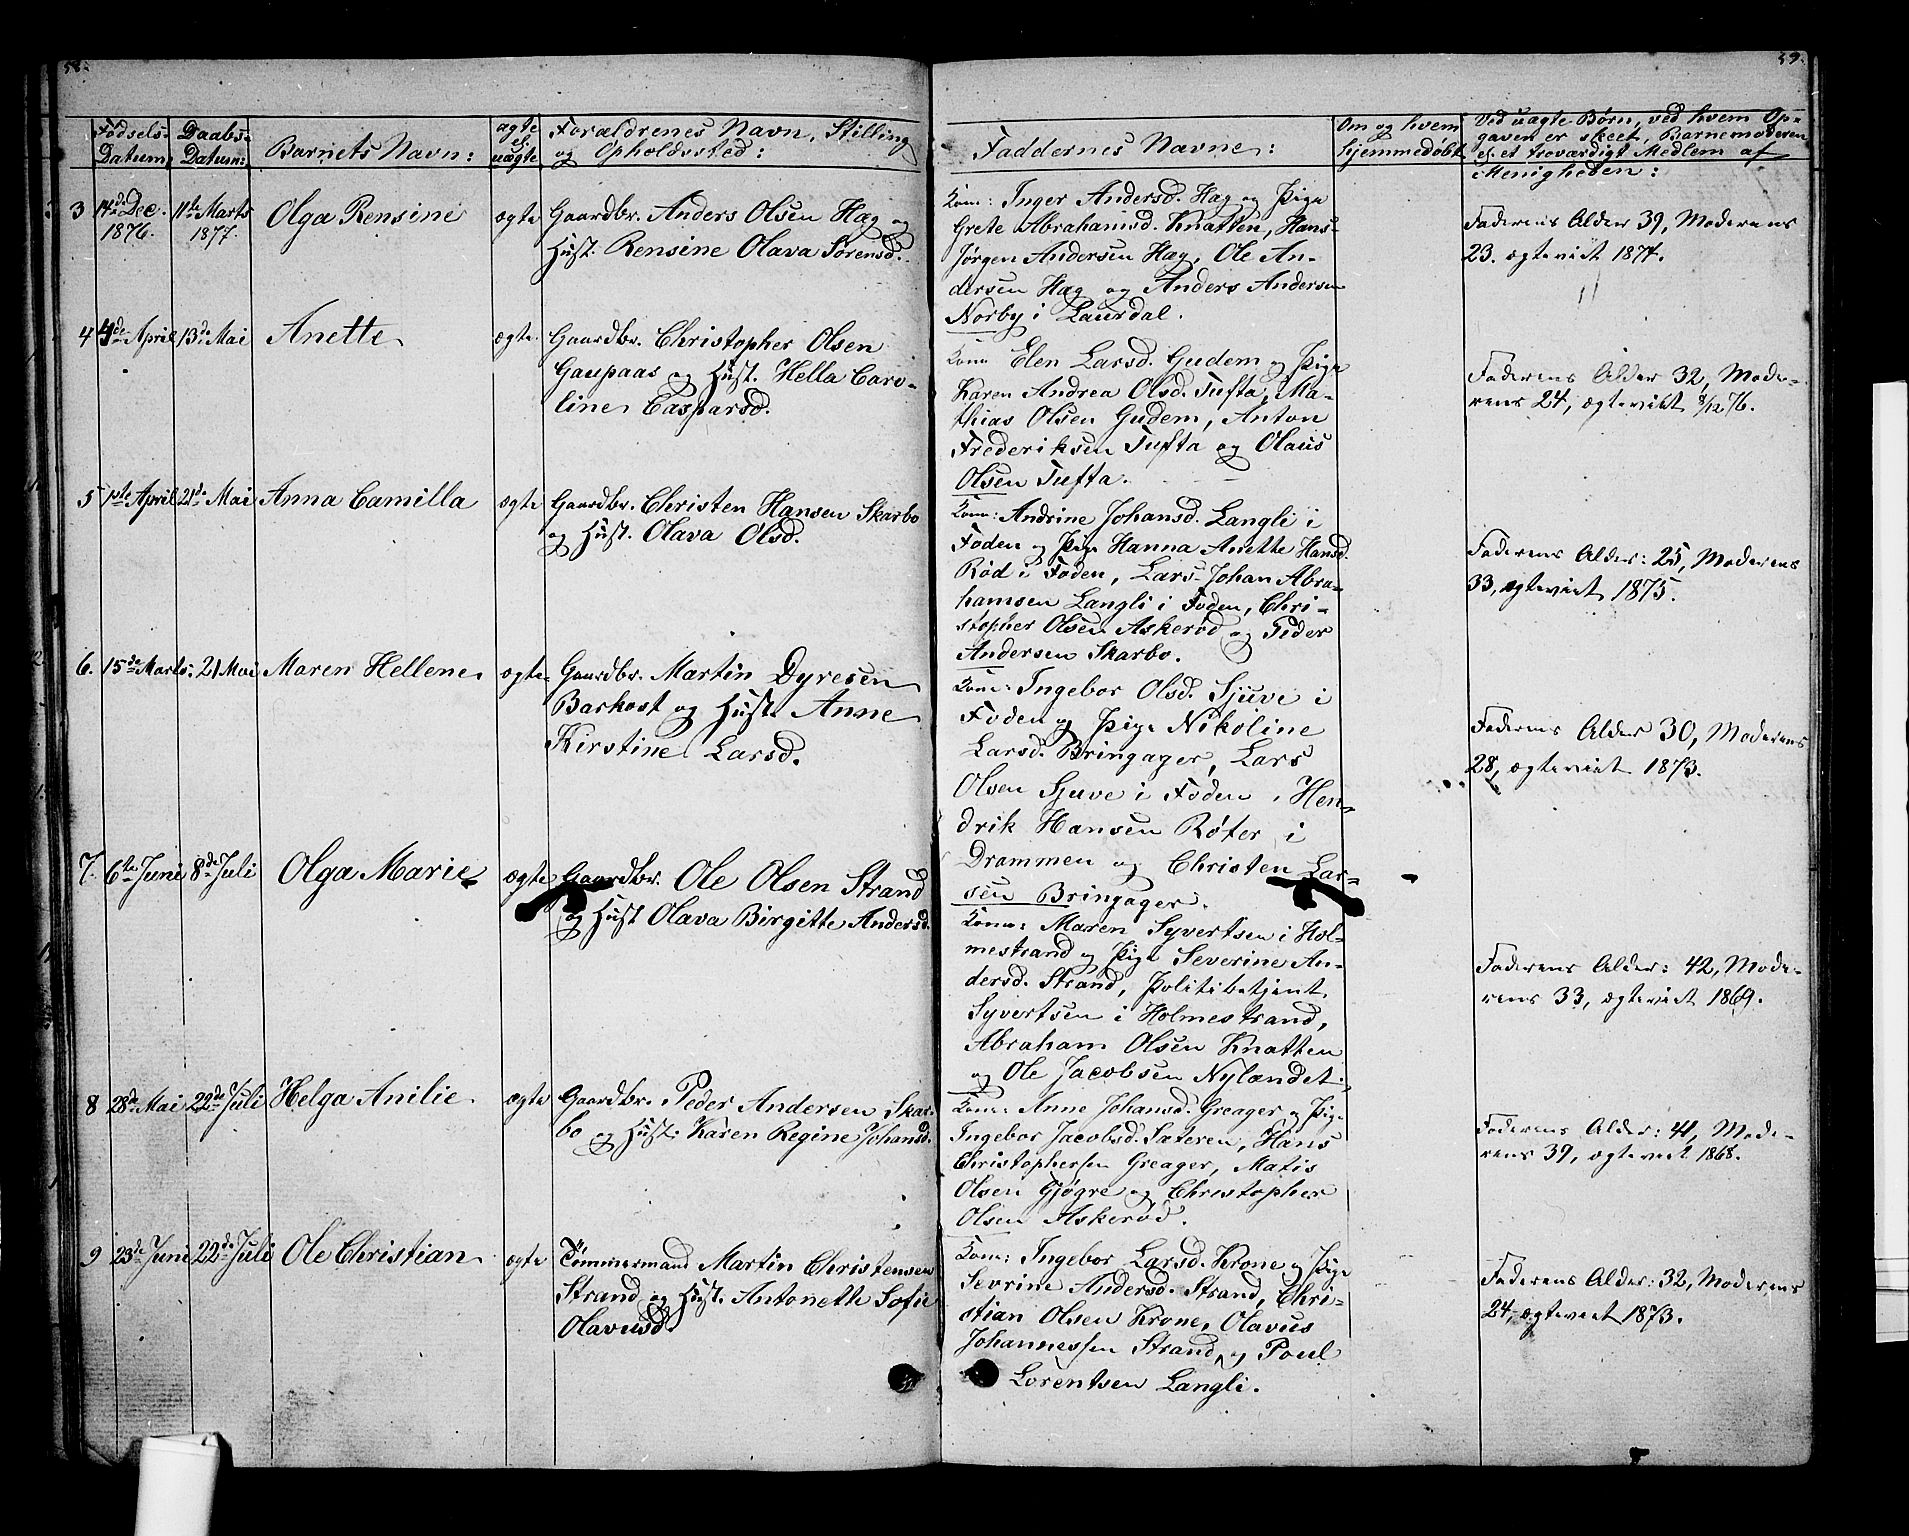 58.
Fødsels-
Datum:
Daabs-
Datum:
Barnets Navn:
ægte
el.
uægte
Forældrenes Navn, Stilling
og Opholdssted:
3
14de Dec.
1876.
11te Marts
1877.
Olga Rensine
ægte
Gaardbr. Anders Olsen Hæg og
Hust. Rensine Olava Sørensd.
4
4de April
13de Mai
Anette
ægte
Gaardbr. Christopher Olsen
Gaupaas og Hust. Hella Caro-
line Casparsd.
5
1ste April
21de Mai
Anna Camilla
ægte
Gaardbr. Christen Hansen Skarbo
og Hust. Olava Olsd.
6.
15de Marts:
21 Mai
Maren Hellene
ægte
Gaardbr. Martin Dyresen
Barkost og Hust. Anne
Kirstine Larsd.
7.
6te Juni
8de Juli
Olga Marie
ægte
Gaardbr. Ole Olsen Strand
og Hust Olava Birgitte Andersd.
8
28de Mai
22de Juli
Helga Anilie
ægte
Gaardbr. Peder Andersen Skar-
bo og Hust. Karen Regine Johansd.
9
23de Juni
22de Juli
Ole Christian
ægte
Tømmermand Martin Christensen
Strand og Hust. Antoneth Sofie
Olavusd.
59.
Faddernes Navne:
Om og hvem
hjemmedøbt
Ved uægte Børn, ved hvem Op-
gaven er skeet, Barnemoderen
el. et troværdigt Medlem af
Menigheden:
Kone: Inger Andersd. Hæg og Pige
Grete Abrahamsd. Knatten, Hans-
Jørgen Andersen Hæg, Ole An-
dersen Hæg og Anders Andersen
Norby i Laurdal.
Faderens Alder 39, Moderens
23. ægteviet 1874.
Kone Elen Larsd. Gudem og Pige
Karen Andrea Olsd. Tufta, Ma-
thias Olsen Gudem, Anton
Frederiksen Tufta og Olaus
Olsen Tufta.
Faderens Alder 32, Mode-
rens 24, ægteviet 8/12 76.
Kone: Andrine Johansd. Langli i
Foden og Pige Hanna Anette Hansd.
Rød i Foden, Lars Johan Abra-
hamsen Langli i Foden, Chri-
stopher Olsen Askerød og Peder
Andersen Skarbo.
Faderens Alder: 25, Moderens
33, ægteviet 1875.
Kone: Ingebor Olsd. Sjuve i
Foden og Pige Nikoline
Larsd. Bringager, Lars
Olsen Sjuve i Foden, Hen-
drik Hansen Røter i
Drammen og Christen Lar-
sen Bringager.
Faderens Alder 30, Moderens
28, ægteviet 1873.
Kone: Maren Syvertsen i Hol-
mestrand og Pige Severine An-
dersd. Strand, Politibetjent
Syvertsen i Holmestrand,
Abraham Olsen Knatten
og Ole Jacobsen Nylændet.
Faderens Alder: 42, Mode-
rens 33, ægteviet 1869.
Kone: Anne Johansd. Greager og Pige
Ingebor Jacobsd. Sæteren, Hans
Christophersen Greager, Matis
Olsen Gjøgre og Christopher
Olsen Askerød.
Faderens Alder: 41, Mode-
rens 39, ægteviet 1868.
Kone: Ingebor Larsd. Krone og Pige
Sevrine Andersd. Strand, Chri-
stian Olsen Krone, Olavus
Johannessen Strand, og Poul
Lorentsen Langli.
Faderens Alder: 32, Moderens
24, ægteviet 1873.